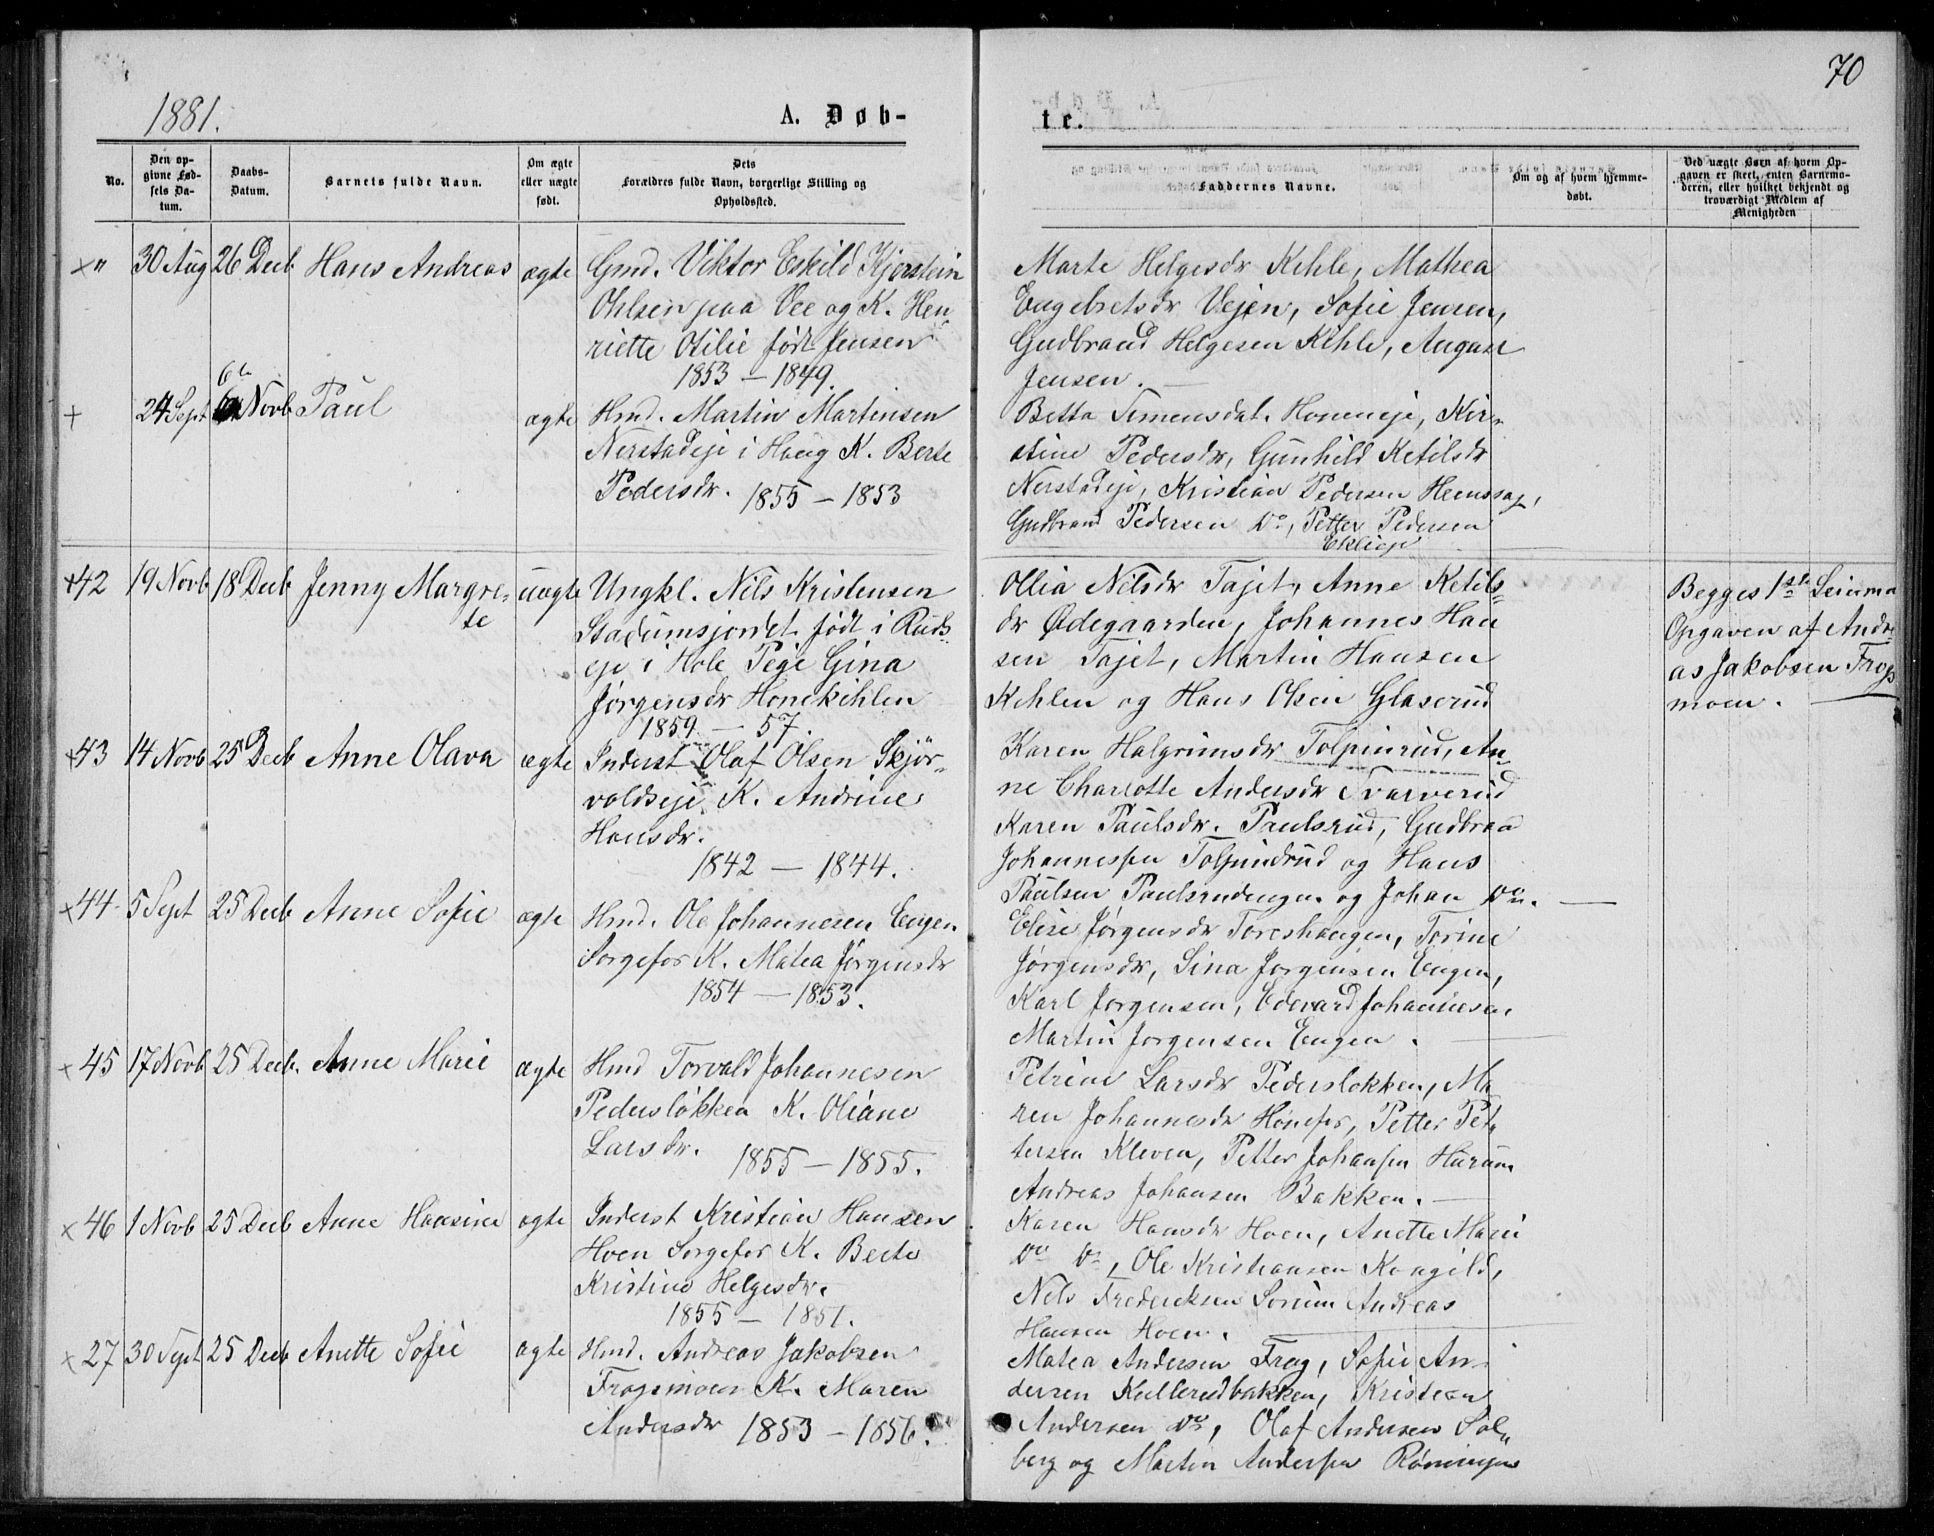 70
1881.
A. Døb-
te.
No.
Den op-
givne Fød-
sels Da-
tum.
Daabs-
Datum.
Barnets fulde Navn.
Om ægte
eller uægte
født.
Dets
Forældres fulde Navn, borgerlige Stilling og
Opholdssted.
Faddernes Navne.
Om og af hvem hjemme-
døbt.
Ved uægte Børn af hvem Op-
gaven er skeet, enten Barnemo-
deren, eller hvilket bekjendt og
troværdigt Medlem af
Menigheden
× " 30 Aug 26 Decb Hans Andreas ægte
Gmd. Viktor Eskild Kjerstein
Ohlsen paa Vee og K. Hen-
riette Otilie født Jensen
1853 – 1849.
Marte Helgesdr Kihle, Mathea
Engebretsdr Vejen, Sofie Jensen,
Gudbrand Helgesen Kihle, August
Jensen.
+ 24 Sept 6te Novb Paul ægte
Hmd. Martin Martinsen
Nerstadeje i Haug K. Berte
Pedersdr. 1855 – 1853
Betta Simensdat. Honeneje, Kir-
stine Pedersdr, Gunhild Ketilsdr
Nerstadeje, Kristian Pedersen Hemssag,
Gudbrand Pedersen Do, Petter Pedersen
Eklieje
×42 19 Novb 18 Decb Jenny Margre-
te
uægte
Ungkl. Nils Kristensen
Stadumsjordet født i Ruds-
eje i Hole Pige Gina
Jørgensdr Honekihlen
1859 – 57.
Ollia Nilsdr Tajet, Anne Ketils-
dr Ødegaarden, Johannes Han
sen Tajet, Martin Hansen
Kihlen og Hans Olsen Glaserud
Begges 1ste Leierm
Opgaven af Andre
as Jakobsen Frogs
moen.
×43 14 Novb 25 Decb Anne Olava ægte
Inderst Olaf Olsen Skjör-
voldseje K. Andrine
Hansdr.
1842 – 1844.
Karen Halgrimsdr Tolpinrud, An-
ne Charlotte Andersdr Tvarverud
Karen Paulsdr. Paulsrud, Gudbran
Johannessen Tolpindrud og Hans
Paulsen Paulsrudengen og Johan Do.
×44 5 Sept 25 Decb Anne Sofie ægte
Hmd. Ole Johannesen Engen
Sorgefos K. Matea Jørgensdr
1854 – 1853.
Elise Jørgensdr Toreshaugen, Torine
Jørgensdr, Sina Jørgensen Engen,
Karl Jørgensen, Edevard Johannesen,
Martin Jørgensen Engen.
×45 17 Novb 25 Decb. Anne Marie ægte
Hmd Torvald Johannesen
Pedersløkken K. Oliane
Larsdr. 1855 – 1855.
Petrine Larsdr Pedersløkken, Ma
ren Johannesdr Hønefos, Petter Pet
tersen Kleven, Petter Johansen Hurum
Andreas Johansen Bakken.
×46 1 Novb 25 Decb Anne Hansine ægte
Inderst Kristian Hansen
Hoen Sorgefos K. Berte
Kristine Helgesdr.
1855 – 1851.
Karen Hansdr Hoen, Anette Marie
Do Do, Ole Kristiansen Kongild,
Nels Frederiksen Sorum Andreas
Hansen Hoen.
×27 30 Sept 25 Decb Anette Sofie ægte
Hmd. Andreas Jakobsen
Frogsmoen K. Maren
Andersdr 1853 – 1856.
Matea Andersen Frog, Sofie An-
dersen Kullerudbakken, Kristian
Andersen Do, Olaf Andersen Sol-
berg og Martin Andersen Rønningen